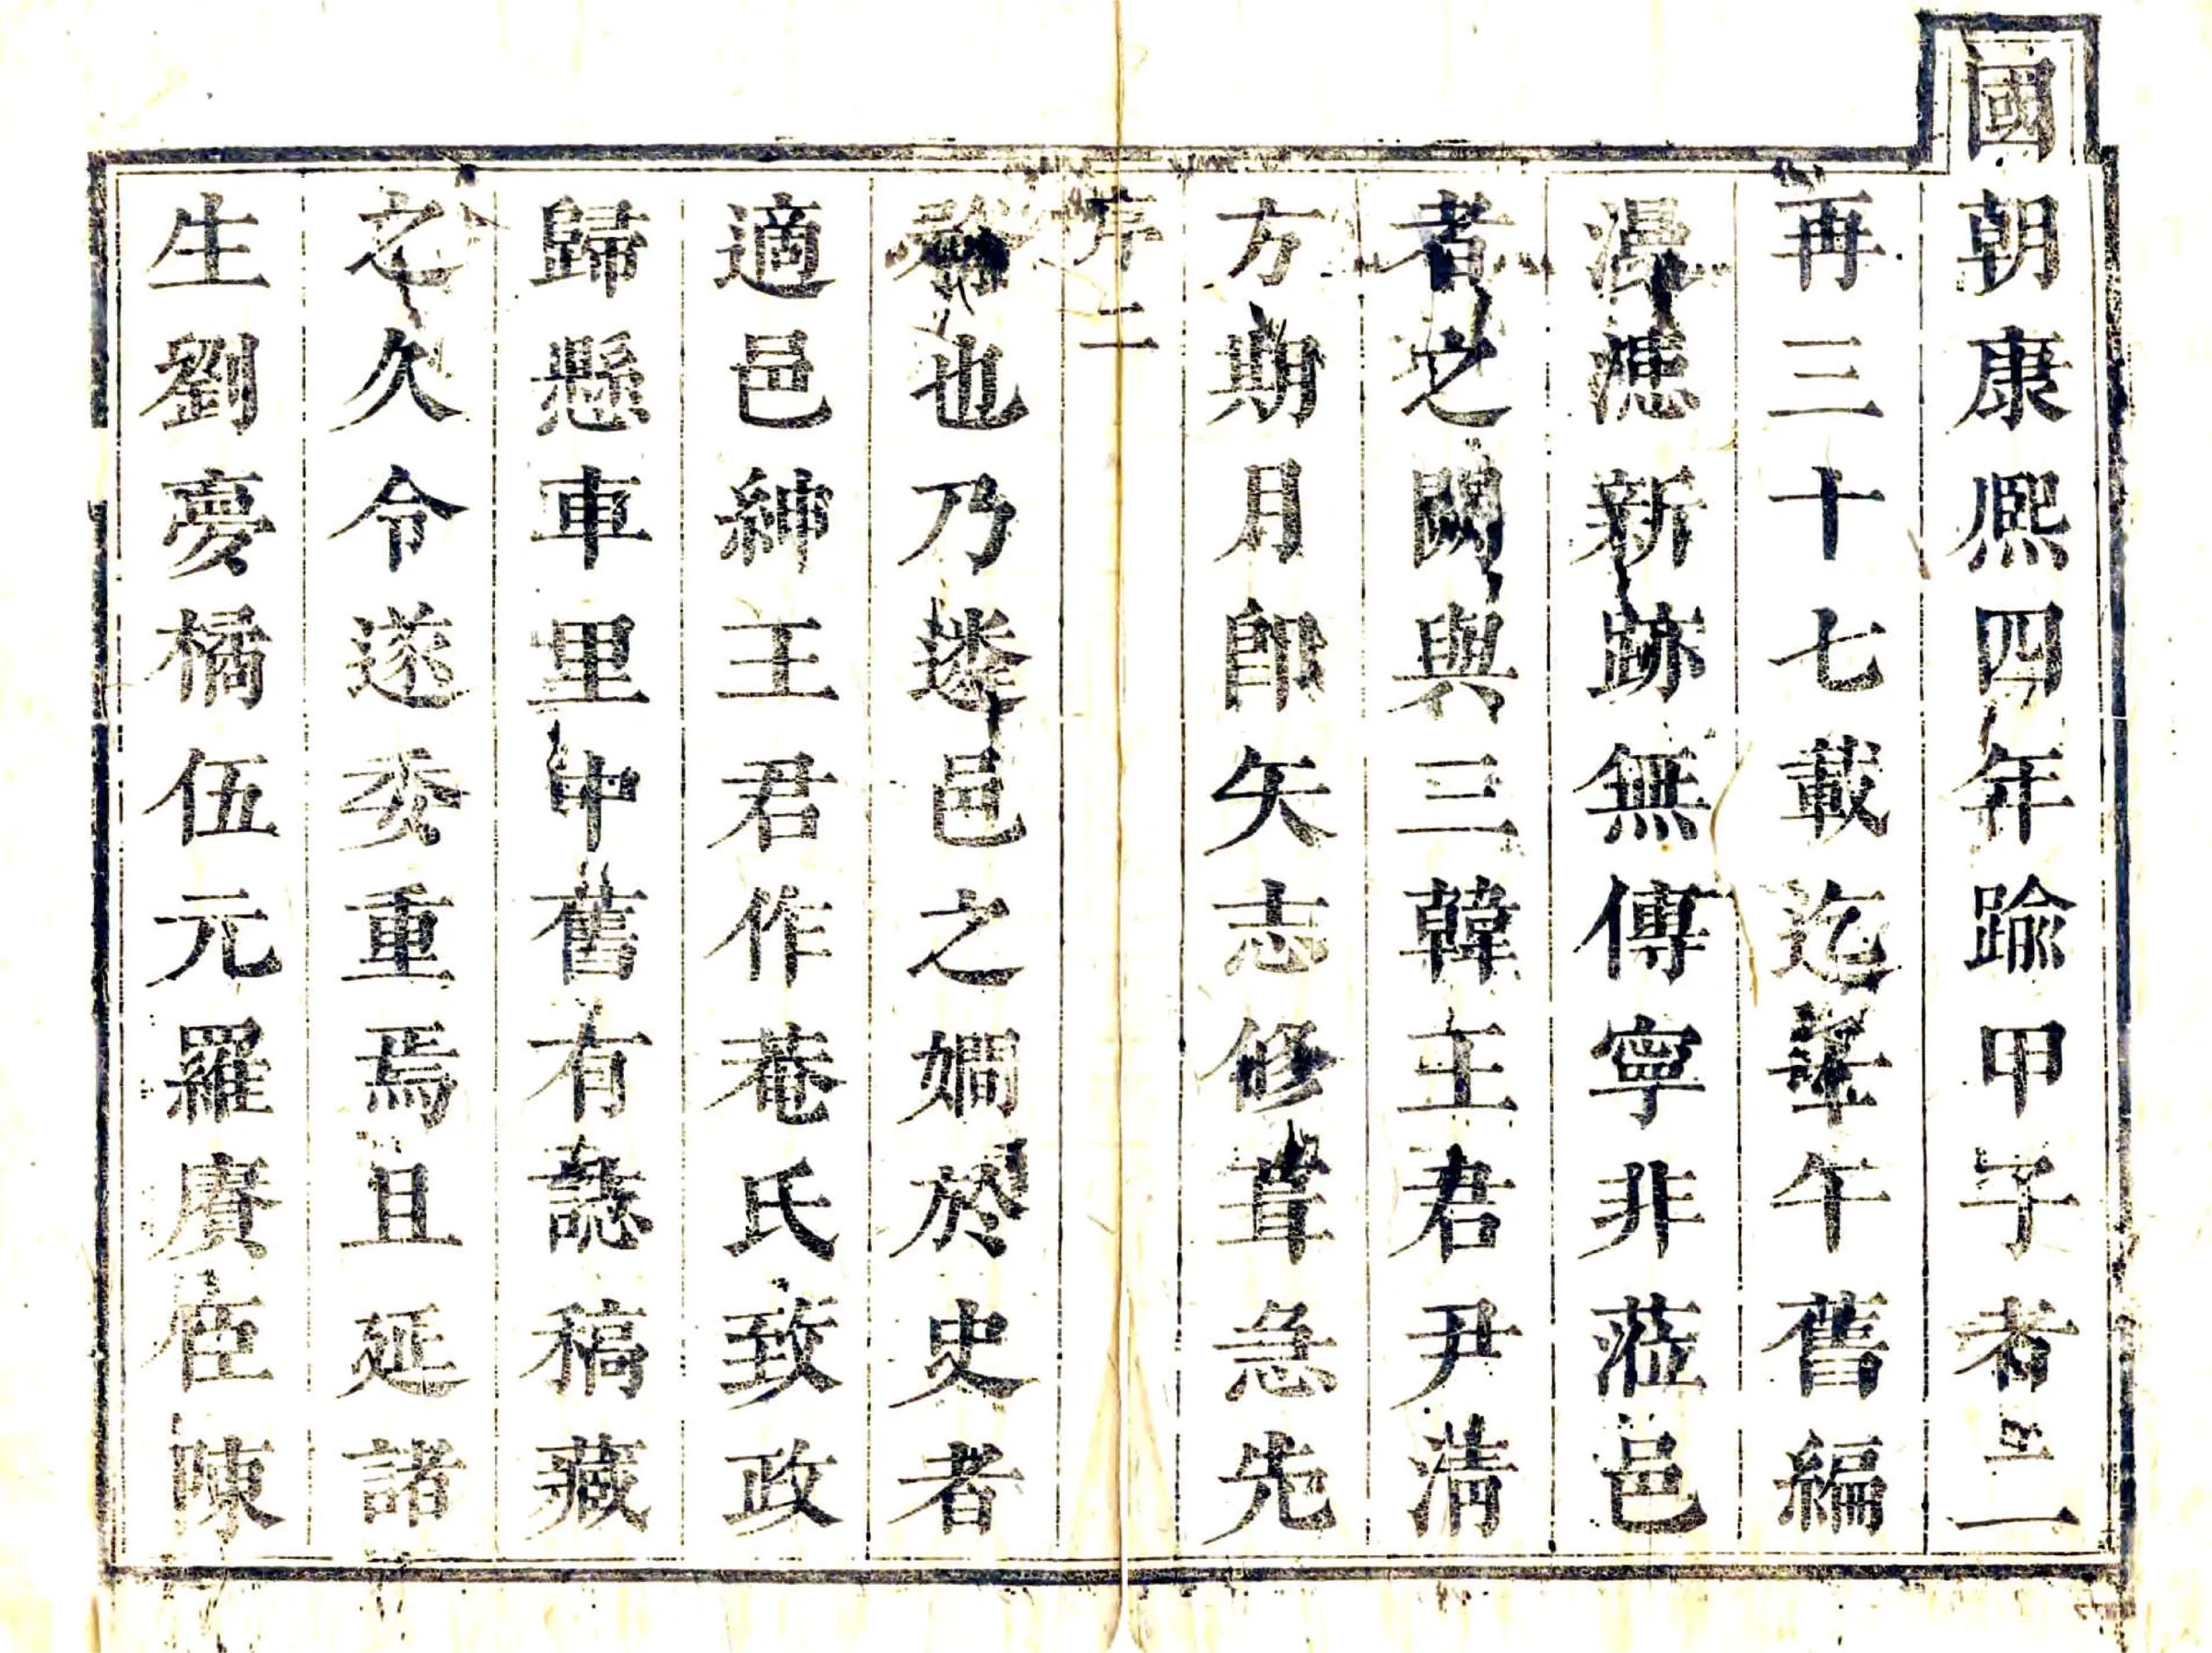 國朝康熈四年踰甲子者二
再三十七載迄午舊編
漫漶新跡無傳寧非蒞邑
者之闕與三韓王君尹清
方期月卽矢志修葺急先
序二
務也乃遴邑之嫺於史者
適邑紳王君作菴氏致政
歸懸車里中舊有誌稿藏
之久令遂委重焉且延諸
生劉夢橘伍元羅賡臣陳